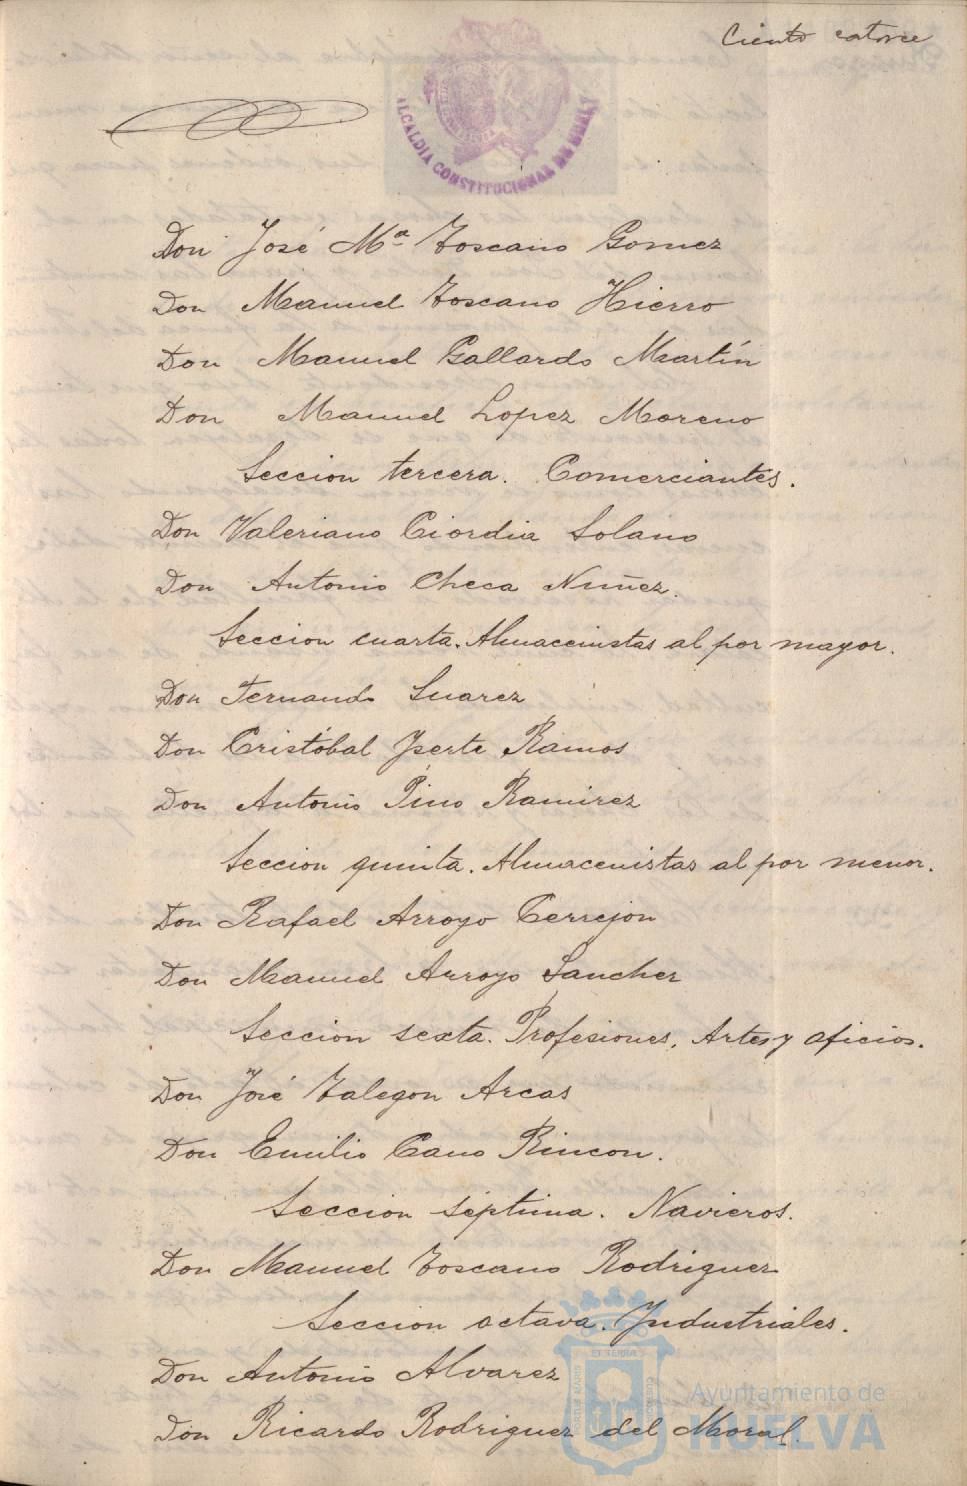 Ciento catorce
ALCALDIA CONSTITUCIONAL DE HUELVA
Don José Mª Toscano Gomez
Don Manuel Toscano Hierro
Don Manuel Gallardo Martín
Don Manuel Lopez Moreno
Seccion tercera. Comerciantes.
Don Valeriano Ciordia Solano
Don Antonio Checa Nuñez.
Seccion cuarta. Almacenistas al por mayor.
Don Fernando Suarez
Don Cristóbal Yserte Ramos
Don Antonio Pino Ramirez
Seccion quinta. Almacenistas al por menor.
Don Rafael Arroyo Cerrejon
Don Manuel Arroyo Sanchez
Seccion sexta. Profesiones, Artes y oficios.
Don José Talegon Arcas
Don Emilio Cano Rincon.
Seccion séptima. Navieros.
Don Manuel Toscano Rodriguez
Seccion octava. Yndustriales.
Don Antonio Alvarez
Don Ricardo Rodriguez del Moral.
ET TERRA
PORTUS MARIS
CUSTODIA
Ayuntamiento de
HUELVA